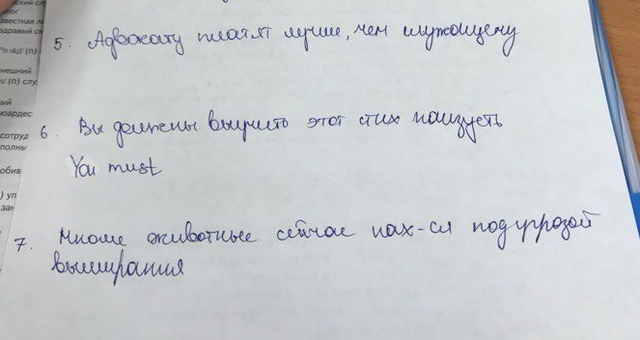 ский сл
звестная л
здравый см
(n)
нешний
(n) слу
ый
юардес
сотруд
полны
обив
) уп
зан
5. Адвокату платят лучше, чем служащему
6. Вы должены выучить этот стих наизусть
You must
7. Многие животные сейчас нах-ся под угрозой
вымирания